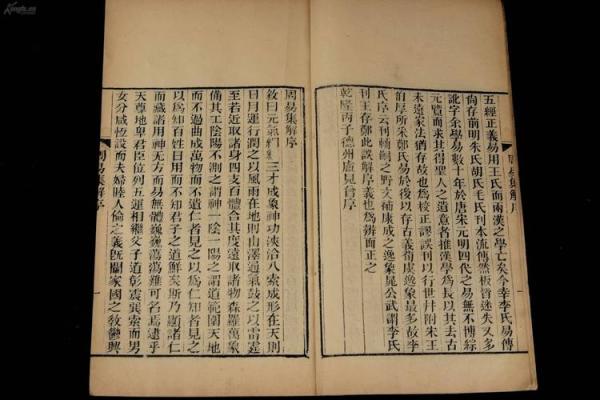 周易集解序
五經正義易用王氏而兩漢之學亡矣今幸李氏易傳
尚存前明朱氏胡氏毛氏刊本流傳然板皆迷失又多
訛字余學易數十年於唐宋元明四代之易無不博綜
元覽而求其得聖人之遺意者推漢學為長以其去古
未遠家法猶存故也為校正謬誤刊以行世并附宋王
伯厚所采鄭氏易於後以存古義荀虞逸象最多故李
氏序云刊輔嗣之野文補康成之逸象晁公武謂李氏
刊王存鄭此誤解序義也為辨而正之
乾隆丙子德州盧見曾序
周易集解序
敘曰元氣絪縕三才成象神功浹洽八索成形在天則
日月運行潤之以風雨在地則山澤通氣鼓之以雷霆
至若近取諸身四支百體合其度遠取諸物森羅萬象
備其工陰陽不測之謂神一陰一陽之謂道範圍天地
而不過曲成萬物而不遺仁者見之以為仁知者見之
以為知百姓日用而不知君子之道鮮矣斯乃顯諸仁
而藏諸用神無方而易無體巍巍蕩蕩難可名焉逮乎
天尊地卑君臣位列五運相繼父子道彰震巽索而男
女分咸恆設而夫婦睦人倫之義旣闡家國之敎鬱興
周易集解序